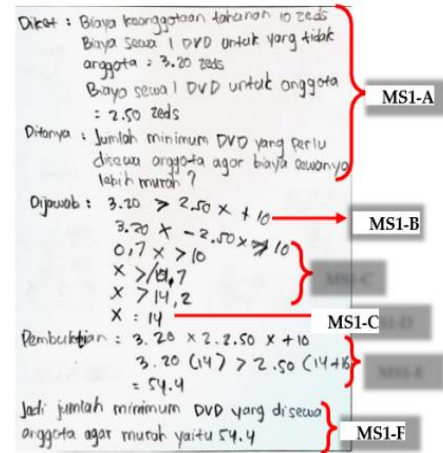 Diket : Biaya keanggotaan tahunan 10 zeds
Biaya sewa 1 DVD untuk yang tidak
anggota : 3.20 zeds
Biaya sewa 1 DVD untuk anggota
: 2.50 zeds
MS1-A
Ditanya : Jumlah minimum DVD yang perlu
disewa anggota agar biaya sewanya
lebih murah ?
Dijawab : 3.20 > 2.50 x + 10
MS1-B
3.20 x - 2.50 x > 10
0,7 x > 10
x > 0,7
x > 14,2
x : 14
MS1-C
Pembuktian : 3.20 x 2.2.50 x + 10
3.20 (14) > 2.50 (14+10
= 54.4
Jadi jumlah minimum DVD yang disewa
anggota agar murah yaitu 54.4
MS1-F